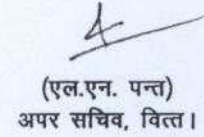 (एल.एन. पन्त)
अपर सचिव, वित्त।